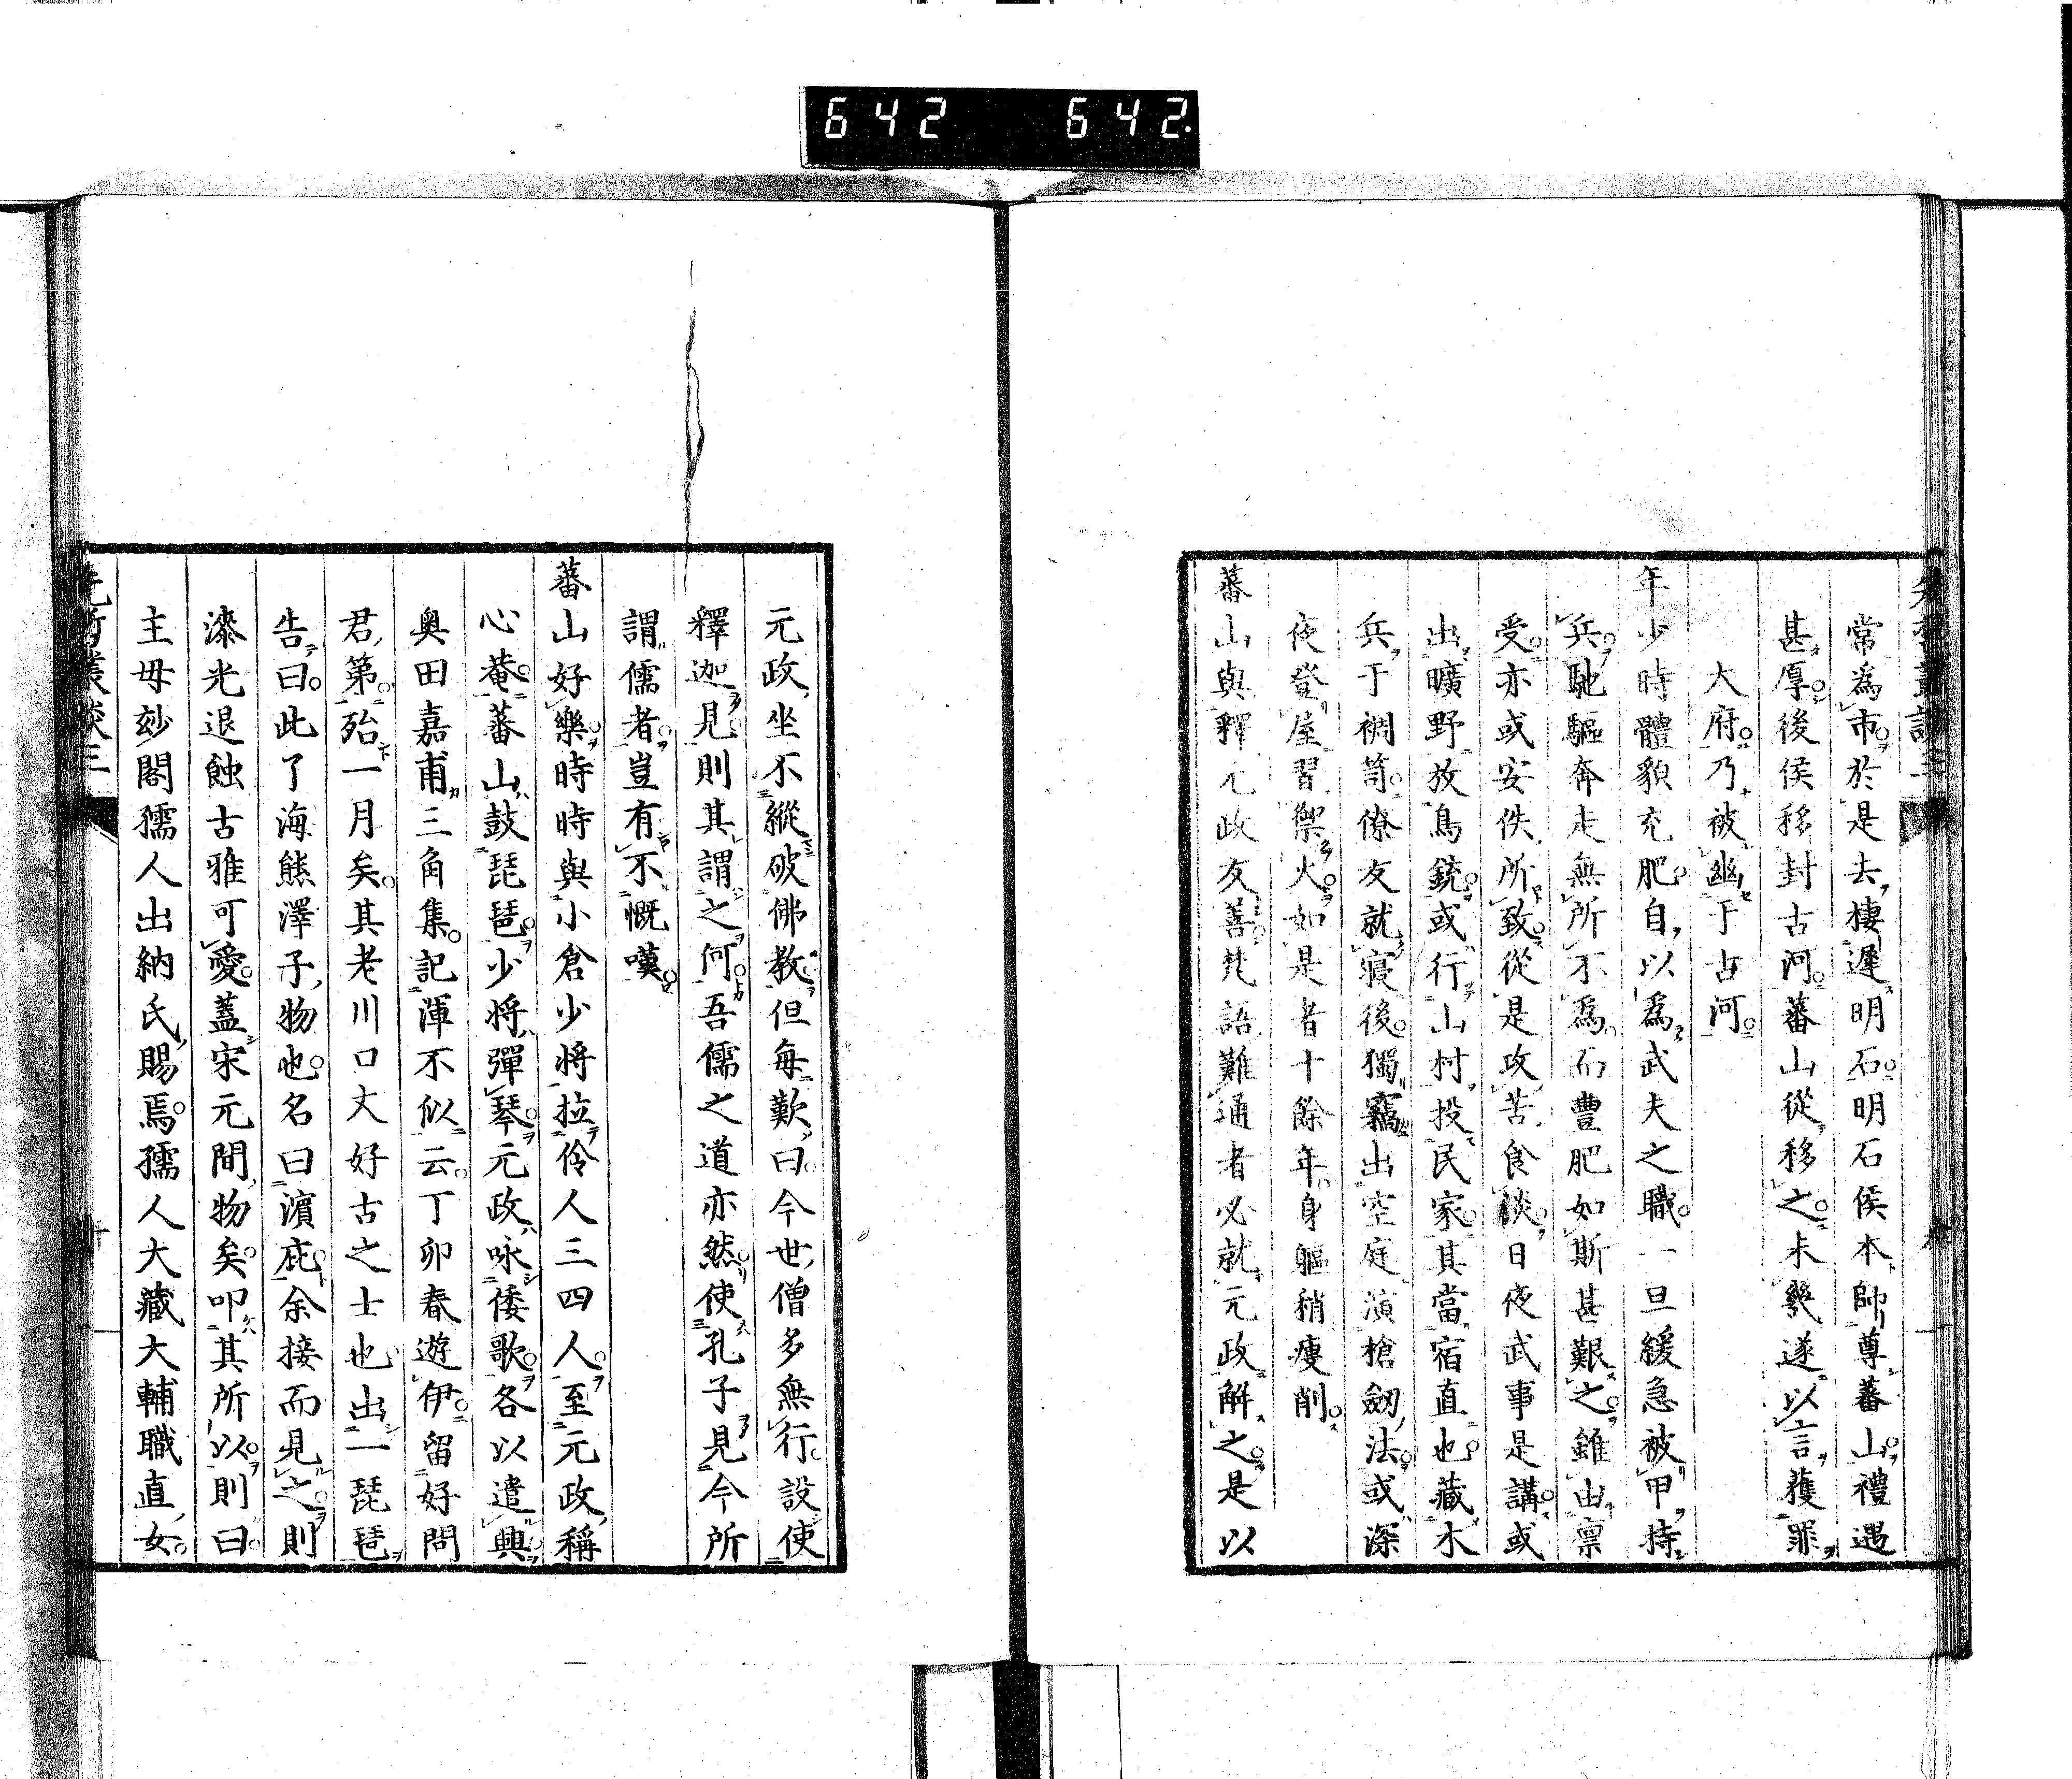 642 642.
常為市於是去棲遲明石明石侯本師尊蕃山禮遇
甚厚後侯移封古河蕃山從移之未幾遂以言獲罪
大府乃被幽于古河
年少時體貌充肥自以為武夫之職一旦緩急被甲持
兵馳驅奔走無所不為而豐肥如斯甚艱之錐由禀
受亦或安佚所致從是攻苦食淡日夜武事是講或
出曠野放鳥銃或行山村投民家其當宿直也藏木
兵于裯笥僚友就寢後獨竊出空庭演槍劔法或深
夜登屋習禦火如是者十餘年身軀稍瘦削
蕃山與釋元政友善梵語難通者必就元政解之是以
元政坐不縱破佛教但每歎曰今世僧多無行設使
釋迦見則其謂之何吾儒之道亦然使孔子見今所
謂儒者豈有不慨嘆
蕃山好樂時時與小倉少將拉伶人三四人至元政稱
心菴蕃山鼓琵琶少將彈琴元政咏倭歌各以遣興
奥田嘉甫三角集記渾不似云丁卯春遊伊留好問
君第殆一月矣其老川口丈好古之士也出一琵琶
告曰此了海熊澤子物也名曰濵庇余接而見之則
漆光退蝕古雅可愛蓋宋元間物矣叩其所以則曰
主毋玅閣孺人出納氏賜焉孺人大藏大輔職直女
先哲叢談三
十